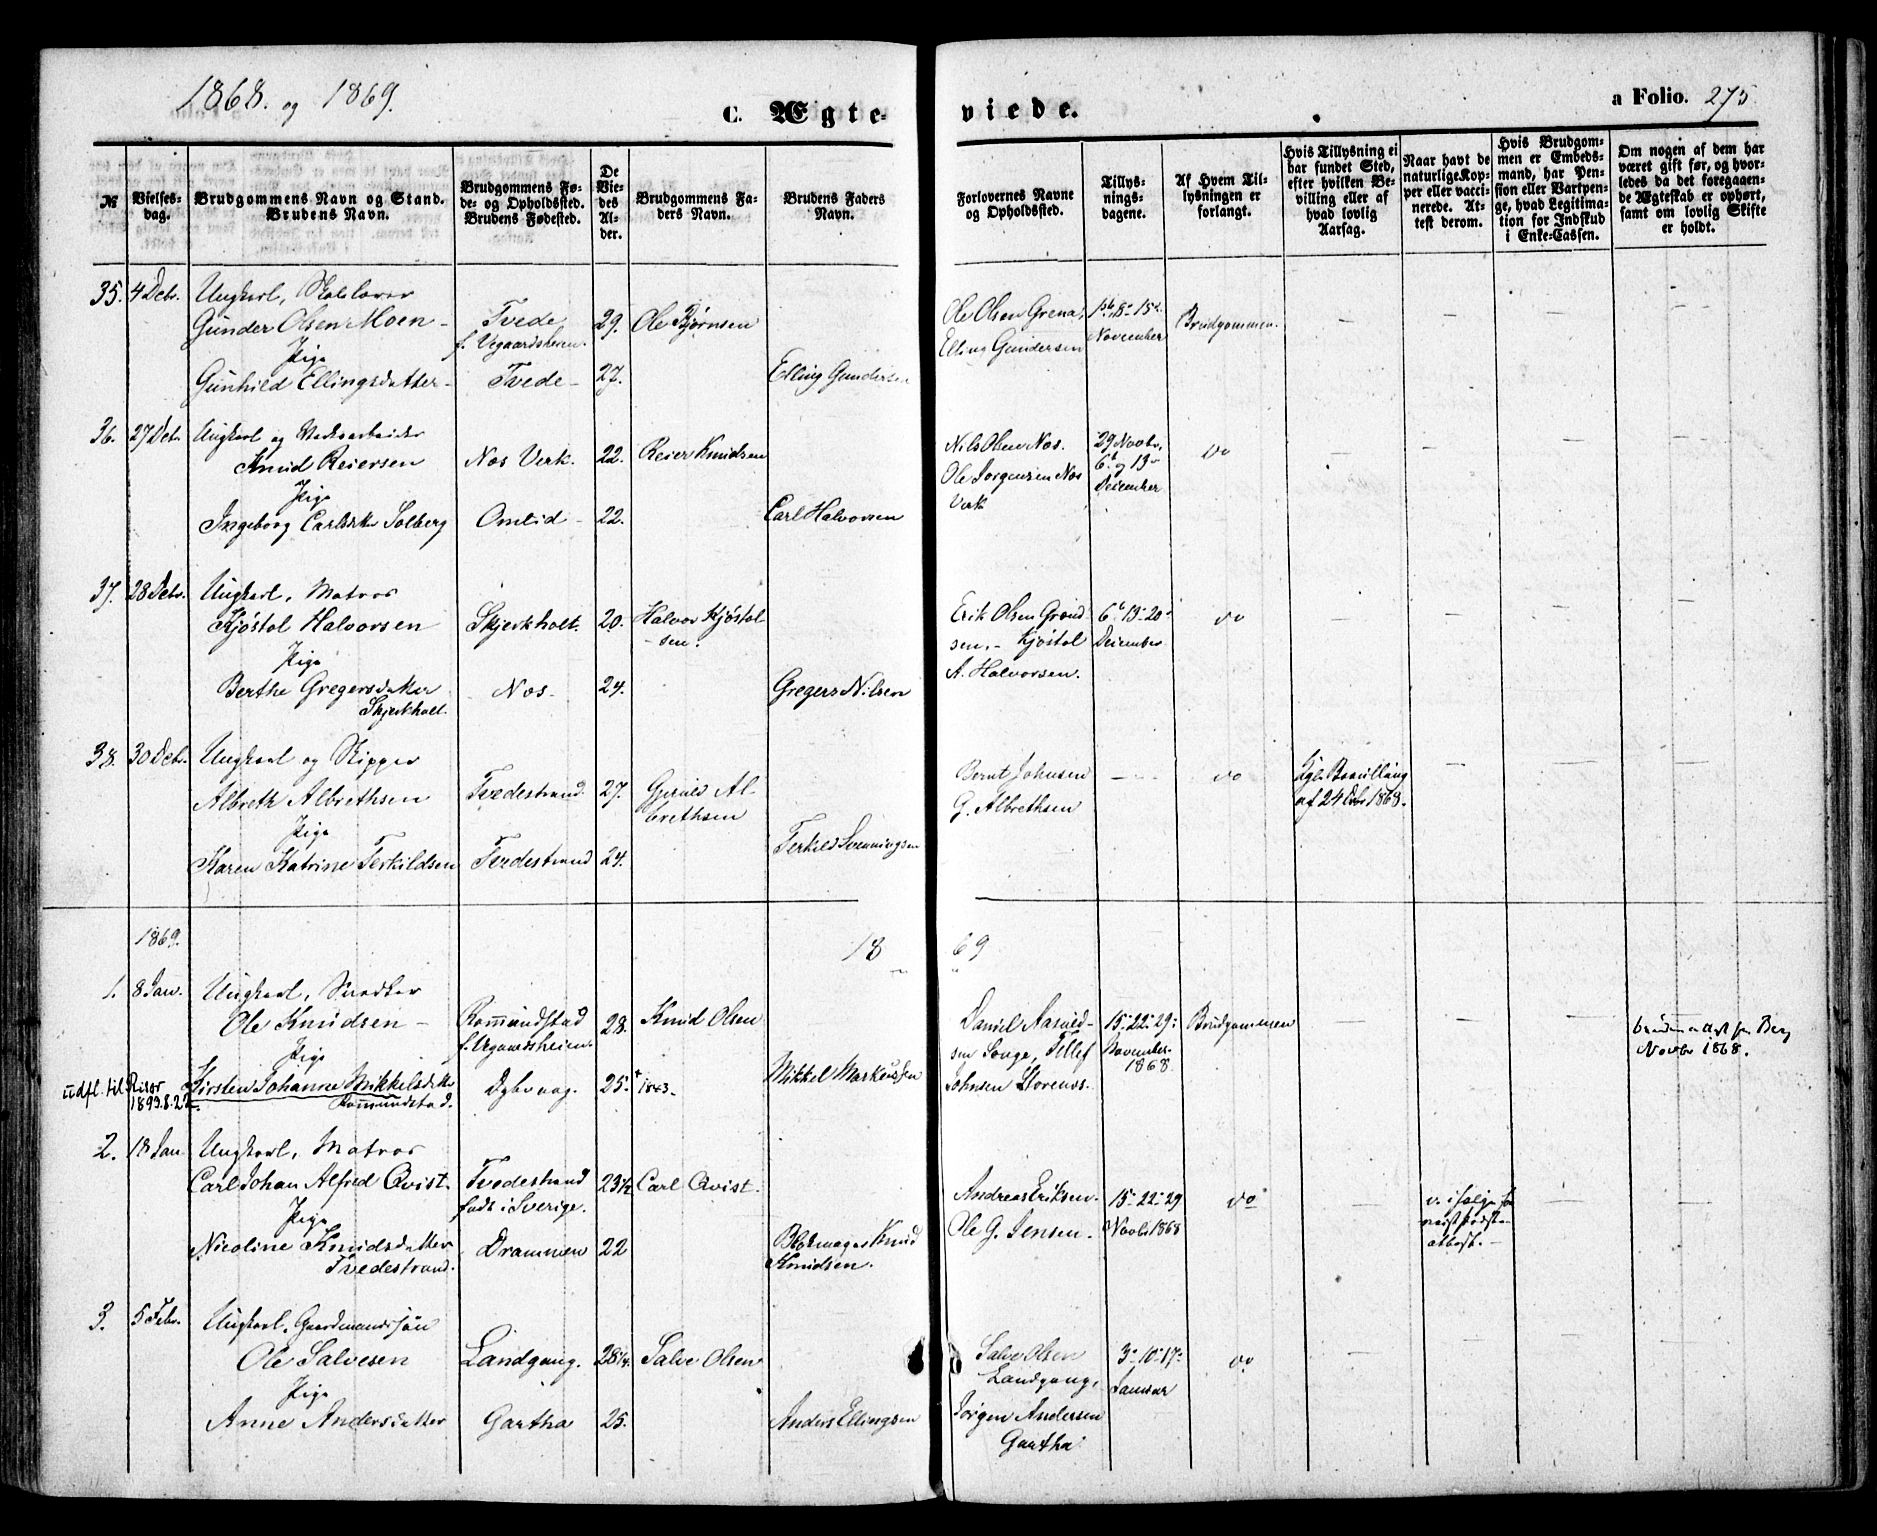 1868. og 1869.
C. Ægteviede.
a Folio. 275
№
Vielsesdag.
Brudgommens Navn og Stand.
Brudens Navn.
Brudgommens Føde- og Opholdssted.
Brudens Fødested.
De Viedes Alder.
Brudgommens Faders Navn.
Brudens Faders Navn.
Forlovernes Navne og Opholdssted.
Tillysningsdagene.
Af Hvem Tillysningen er forlangt.
Hvis Tillysning ei har fundet Sted, efter hvilken Bevilling eller af hvad lovlig Aarsag.
Naar havt de naturlige Kopper eller vaccinerede. Attest derom.
Hvis Brudgommen er Embedsmand, har Pension eller Vartpenge, hvad Legitimation for Indskud i Enke-Cassen.
Om nogen af dem har været gift før, og hvorledes da det foregaaende Ægteskab er ophørt, samt om lovlig Skifte er holdt.
35. 4 Debr. Ungkarl,
Gunder Olsen Moen - Tvede f. Vegaardsheien. 29. Ole Bjørnsen
Pige
Gunhild Ellingsdatter - Tvede - 27. Elling Gundersen
Ole Olsen Grena 8 - 15
Elling Gundersen November Brudgommen. - - - -
36. 27 Debr. Ungkarl og
Knud Reiersen Næs Verk. 22. Reier Knudsen
Pige
Ingeborg Carlsdtr Solberg Omlid - 22. Carl Halvorsen
Nils Olsen Næs. 29 Novbr,
Ole Jørgensen Næs 6 og 13 do - - - -
Verk December
37. 28 Debr. Ungkarl, Matros
Kjøstol Halvorsen Skjerkholt. 20. Halvor Kjøstolsen.
Pige
Berthe Gregersdatter Næs - 24. Gregers Nilsen
Skjerkholt
Erik Olsen 6 - 13 - 20 do - - - -
sen. - Kjøstol December
A. Halvorsen.
38. 30 Debr. Ungkarl og Skipper
Albreth Albrethsen Tvedestrand. 27. Albrethsen
Pige
Karen Katrine Terkildsen Tvedestrand 24. Terkild Svenningsen
Bernt Johnsen - - do Kgl. Bevilling
G. Albrethsen af 24 Debr 1868. - - -
1869.
1869
1. 8 Jan. Ungkarl, Snedker
Ole Knudsen - Romundstad f. Vegaardsheien. 28. Knud Olsen
Pige
udfl. til Risør 1893.8.22 Kirsten Johanne Mikkelsdatter Dybvaag. 25. 1843. Mikkel Markussen
Romundstad.
Daniel 15 - 22 - 29 Brudgommen
sen Songe, Tellef November
Johnsen 1868 - - -
Novbr 1868.
2. 18 Jan Ungkarl, Matros
Carl Johan Alfred Qvist. Tvedestrand født i Sverige. 23½ Carl Qvist.
Pige
Nicoline Knudsdatter Drammen 22 Knud Knudsen.
Tvedestrand.
Andreas Eriksen. 15 - 22 - 29 do
Ole G. Jensen. Novbr 1868 - v. ifølge - -
3. 5 Febr. Ungkarl, Gaardmandssøn
Ole Salvesen Landgang. 28¼ Salve Olsen
Pige
Anne Andersdatter Gartha 25. Anders Ellingsen
Salve Olsen 3 - 10 - 17 do - - - -
Landgang, Januar
Jørgen Andersen
Gartha